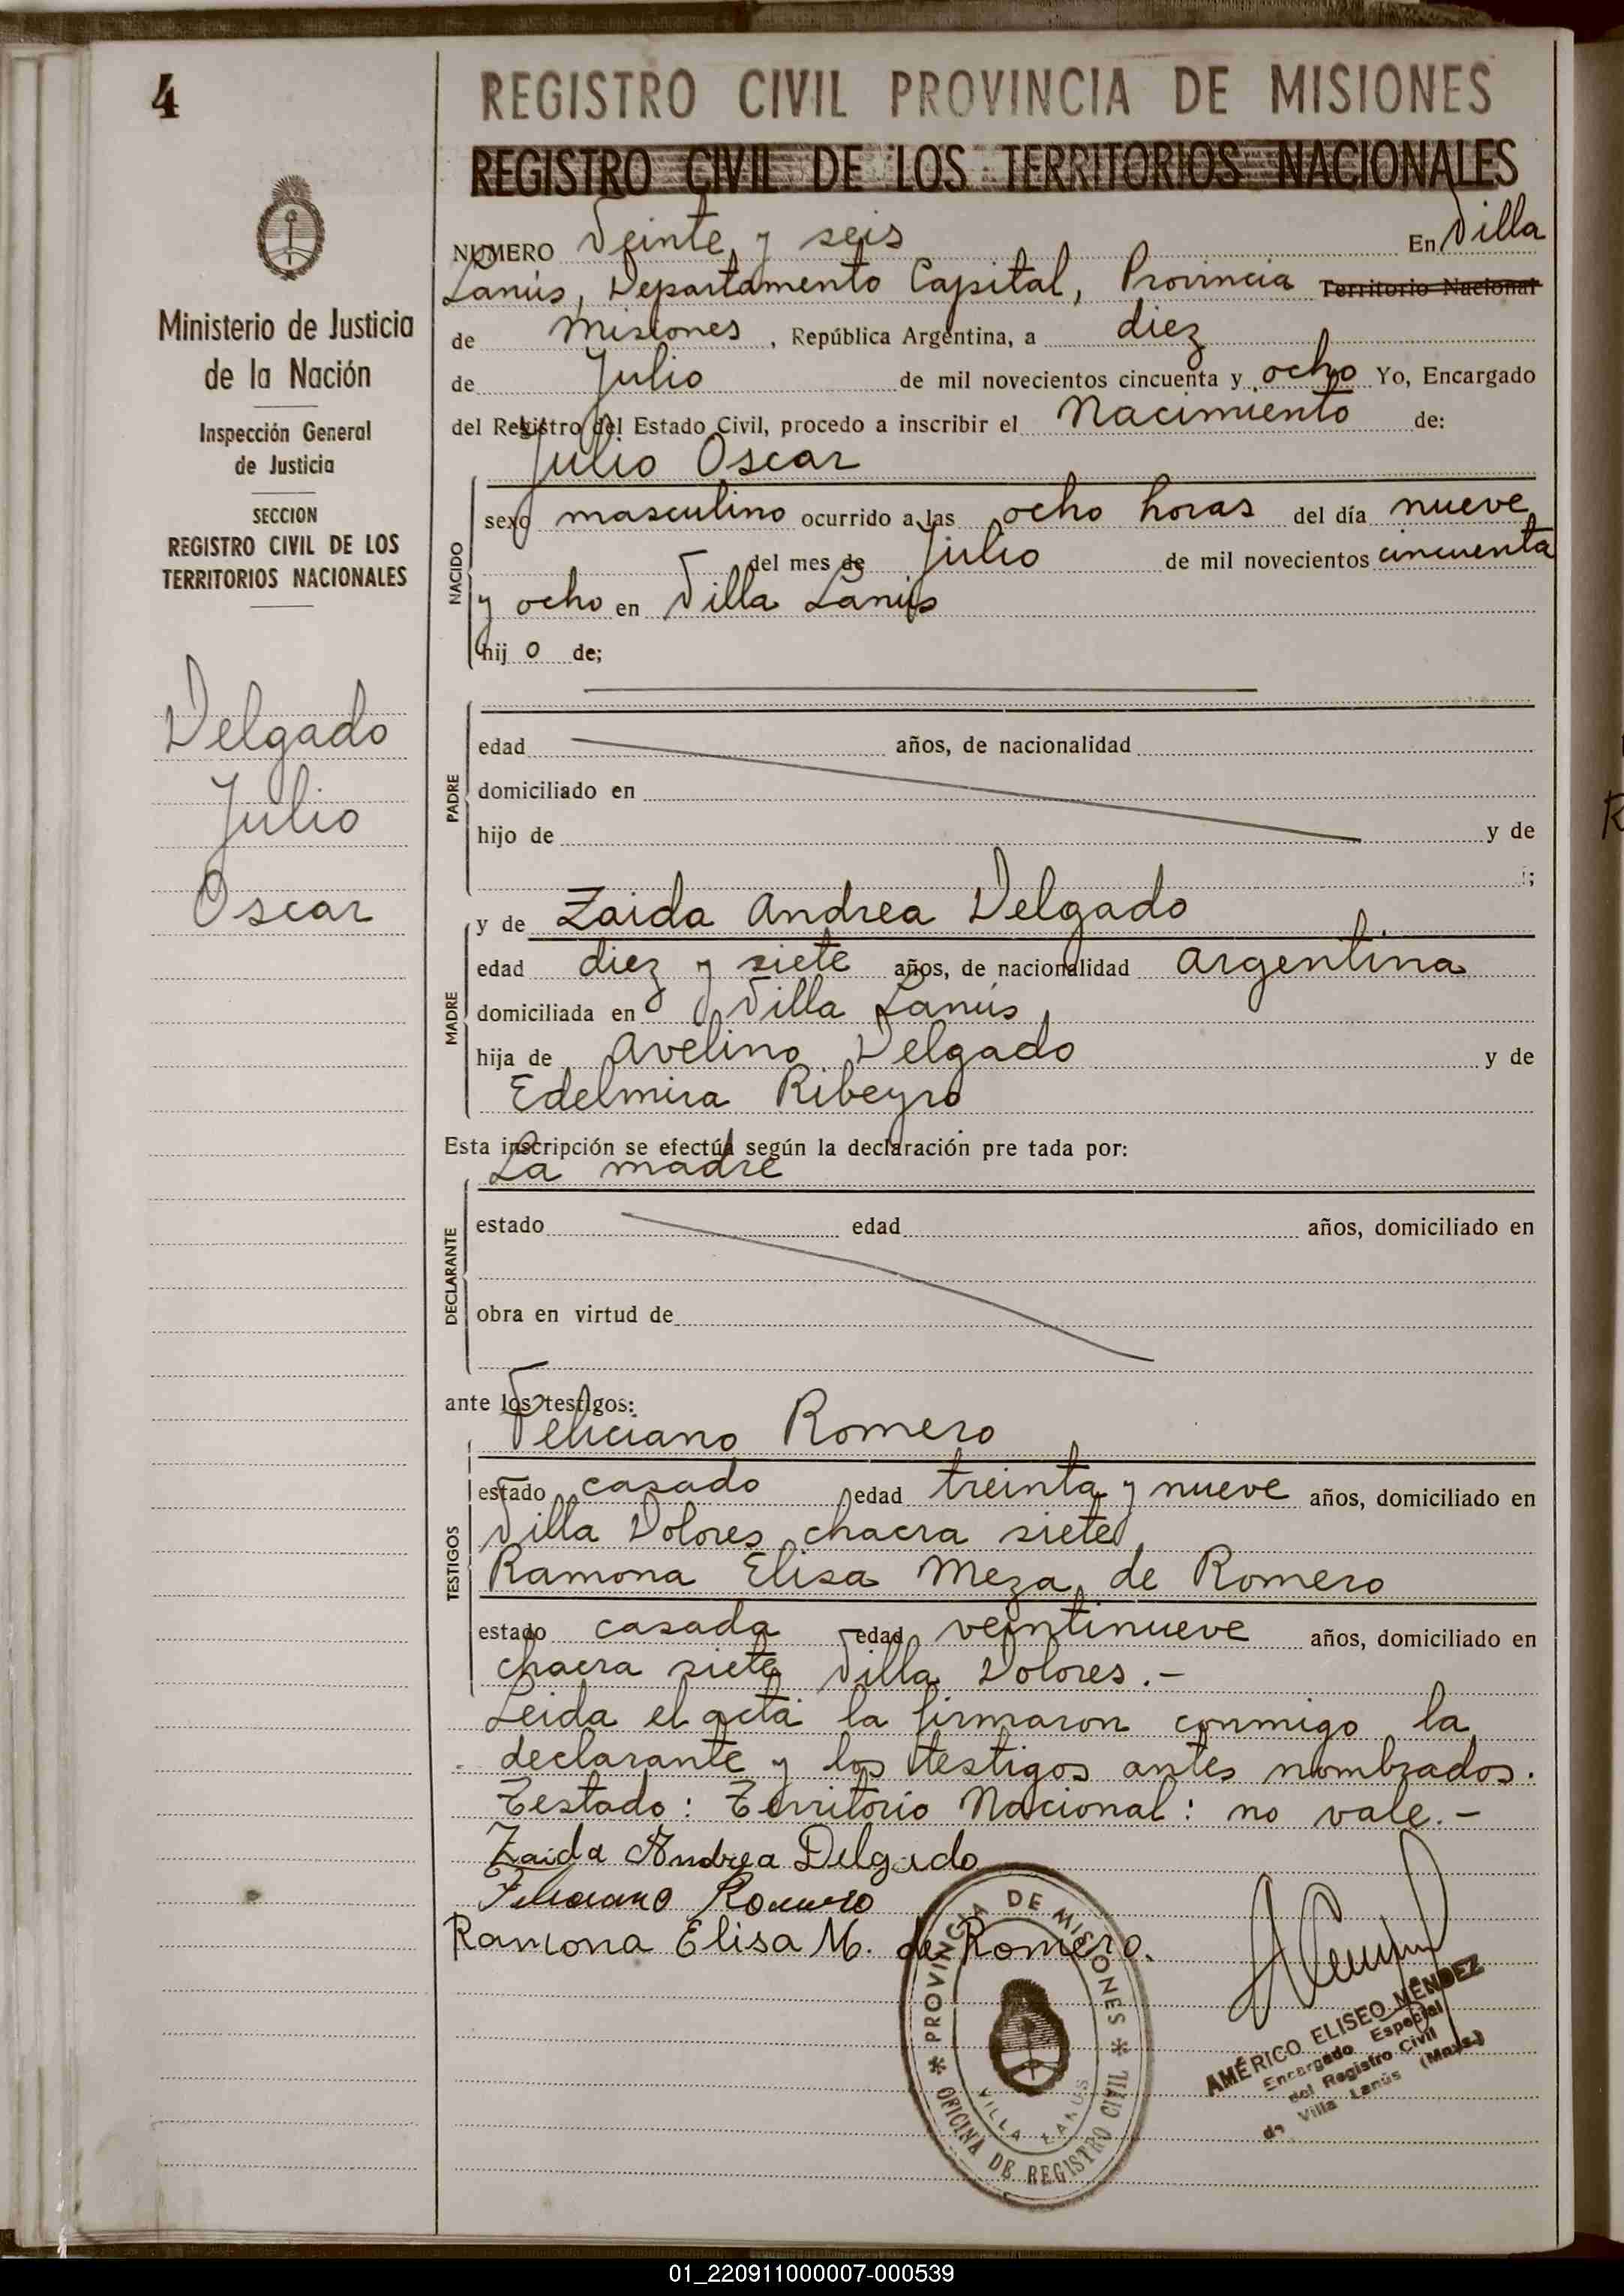 4
Ministerio de Justicia
de la Nación
Inspección General
de Justicia
SECCION
REGISTRO CIVIL DE LOS
TERRITORIOS NACIONALES
Delgado
Julio
Oscar
REGISTRO CIVIL PROVINCIA DE MISIONES
REGISTRO CIVIL DE LOS TERRITORIOS NACIONALES
NUMERO Veinte y seis En Villa
Lanús, Departamento Capital, Provincia Territorio Nacional
de Misiones, República Argentina, a diez
de Julio de mil novecientos cincuenta y ocho Yo, Encargado
del Registro del Estado Civil, procedo a inscribir el Nacimiento de:
Julio Oscar
NACIDO
sexo masculino ocurrido a las ocho horas del día nueve
del mes de Julio de mil novecientos cincuenta
y ocho en Villa Lanús
hij o de;
PADRE
edad años, de nacionalidad
domiciliado en
hijo de y de
;
MADRE
y de Zaida Andrea Delgado
edad diez y siete años, de nacionalidad Argentina
domiciliada en Villa Lanús
hija de Avelino Delgado y de
Edelmira Ribeyro
Esta inscripción se efectúa según la declaración pre tada por:
La madre
DECLARANTE
estado edad años, domiciliado en
obra en virtud de
ante los testigos:
Feliciano Romero
TESTIGOS
estado casado edad treinta y nueve años, domiciliado en
Villa Dolores chacra siete
Ramona Elisa Meza de Romero
estado casada edad veintinueve años, domiciliado en
chacra siete Villa Dolores.-
Leida el acta la firmaron conmigo la
declarante y los testigos antes nombrados.
Testado: Territorio Nacional: no vale.-
Zaida Andrea Delgado
Feliciano Romero
Ramona Elisa M. de Romero.
PROVINCIA DE MISIONES
OFICINA DE REGISTRO CIVIL
VILLA LANUS
AMÉRICO ELISEO MÉNDEZ
Encargado Especial
del Registro Civil
de Villa Lanús (Mnes.)
01_220911000007-000539